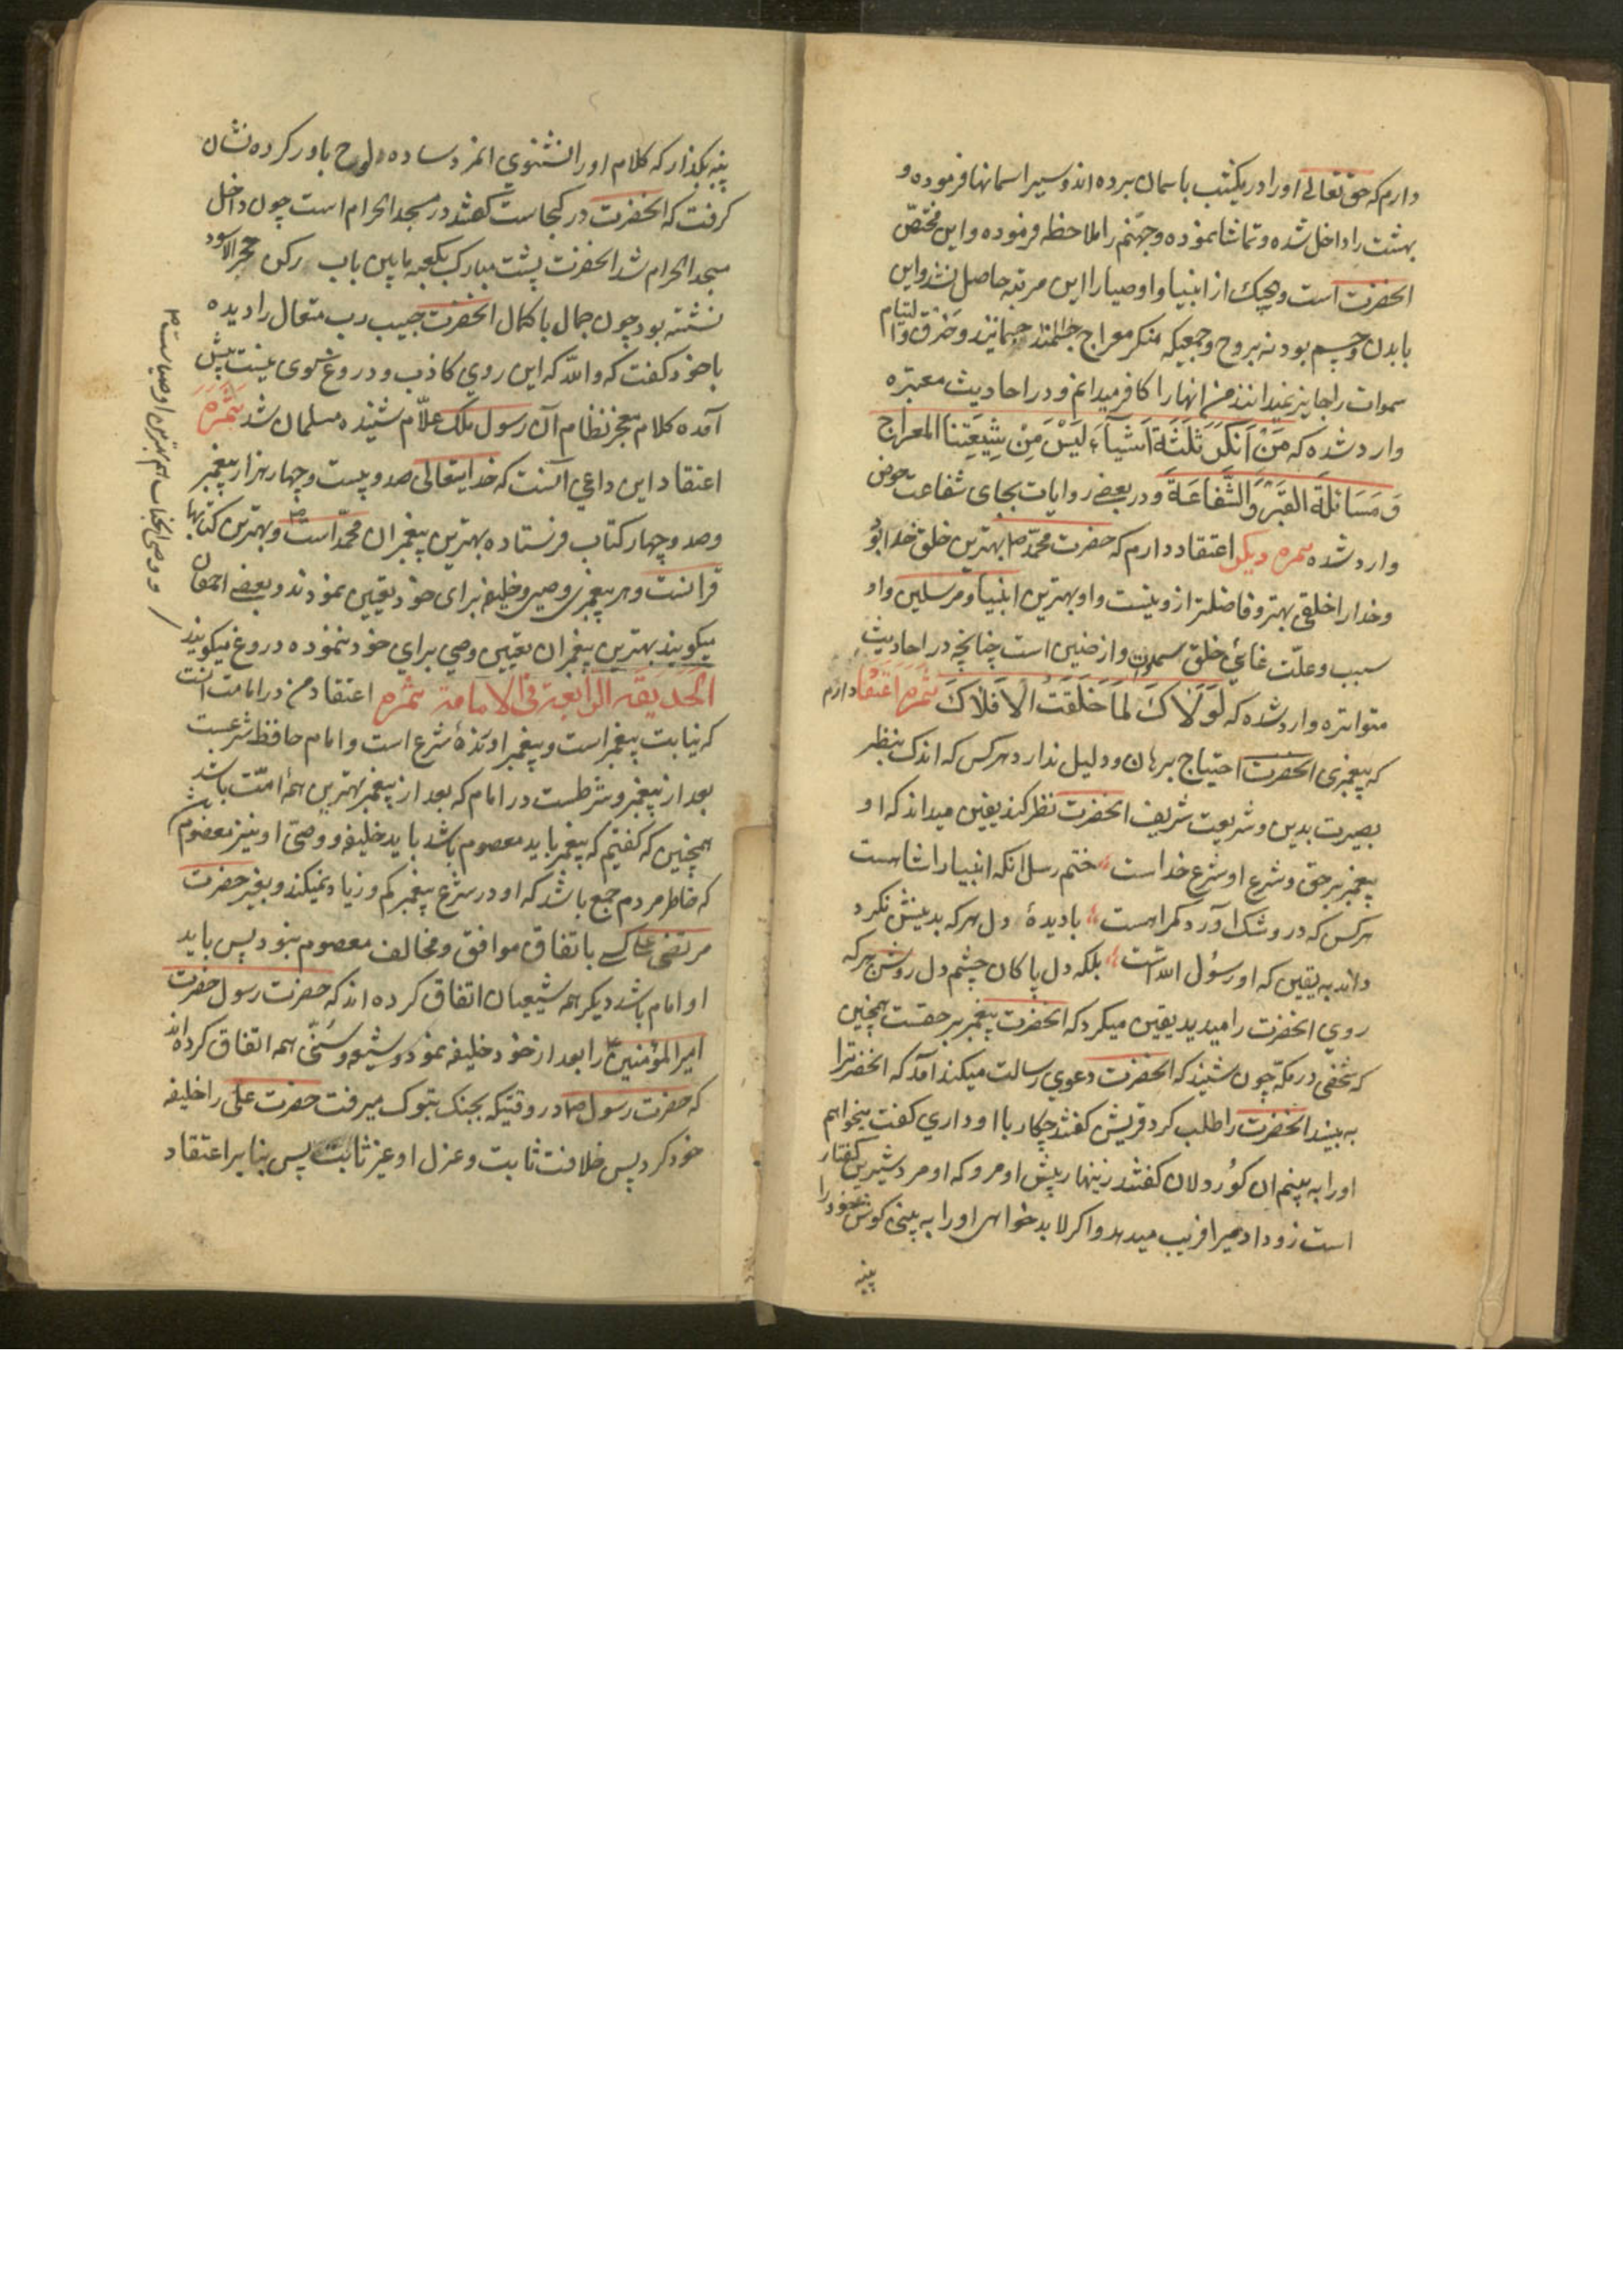 دارم که حق تعالی او را در یکشب باسمان برده اند و سیر اسمانها فرموده و
بهشت را داخل شده و تماشا نموده و جهنم را ملاحظه فرموده و این مختص
انحضرت است و هیچیک از انبیا و اوصیا را این مرتبه حاصل نشد و این
با بدن و جسم بود نه بروح و جمعیکه منکر معراج جسمانیند و خرق و التیام
سموات را جایز نمیدانند من انها را کافر میدانم و در احادیث معتبره
وارد شده که مَنْ اَنْکَرَ ثَلٰثَةَ اَشْیآءَ لَیْسَ مِنْ شِیعَتِنا المعراج
وَ مَسَائلَةَ القَبْرِ وَالشَّفاعَةَ و در بعضے روایات بجای شفاعت حوض
وارد شده ثمره دیکر اعتقاد دارم که حضرت محمد ص بهترین خلق خدا بود
و خدا را خلقی بهتر و فاضلتر از و نیست و او بهترین انبیا و مرسلین و او
سبب و علّت غائی خلق سموات و ارضین است چنانچه در احادیث
متواتره وارد شده که لَوْلَاکَ لَمَا خَلَقْتُ الْاَفْلَاکَ ثمره اعتقاد دارم
که پیغمبری انحضرت احتیاج ببرهان و دلیل ندارد هر کس که اندک بنظر
بصیرت بدین و شریعت شریف انحضرت نظر کند یقین میداند که او
پیغمبر بر حق و شرع او شرع خداست ختم رسل انکه انبیا را شاهست
هر کس که درو شک آورد کمراهست با دیدهٔ دل هر که بدینش نکرد
داند به یقین که او رسُول اللّه است بلکه دل پاکان چشم دل روشن هر که
روی انحضرت را میدید یقین میکرد که انحضرت پیغمبر بر حقست همچنین
که شخصی در مکه چون شنید که انحضرت دعوی رسالت میکند آمد که انحضرترا
به بیند انحضرت را طلب کرد قریش کفتند چکار با او داری کفت میخواهم
او را به بینم ان کوُر دلان کفتند زینهار پیش او مرو که او مرد شیرین کفتار
است زود ادمیرا فریب میدهد و اکر لابد خواهی او را به بینی کوش خود را
پنبه
پنبه بکذار که کلام او را نشنوی انمرد ساده لوح باور کرده نشان
کرفت که انحضرت در کجاست کفتند در مسجد الحرام است چون داخل
مسجد الحرام شد انحضرت پشت مبارک بکعبه مابین باب رکن حجر الاسود
نشسته بود چون جمال با کمال انحضرت حبیب رب متعال را دیده
با خود کفت که واللّه که این روی کاذب و دروغ کوی نیست پیش
آمده کلام معجز نظام آن رسول ملک علّام شنیده مسلمان شد ثَمَره
اعتقاد این داعی انست که خدایتعالی صد و بیست و چهار هزار پیغمبر
و صد و چهار کتاب فرستاده بهترین پیغمبران محمّد است ص و بهترین کتابها
قرانست و هر پیغمبری وصی و خلیفه برای خود تعیین نمودند و بعضے احمقان
میکویند بهترین پیغمبران تعیین وصی برای خود ننموده دروغ میکویند
الحدیقة الرابعة فی الامامة ثمره اعتقاد من در امامت انست
که نیابت پیغمبر است و پیغمبر اورندهٔ شرع است و امام حافظ شرعست
بعد از پیغمبر و شرطست در امام که بعد از پیغمبر بهترین همهٔ امّت باشد
همچنین که کفتیم که پیغمبر باید معصوم باشد باید خلیفه و وصی او نیز معصوم باشد
که خاطر مردم جمع باشد که او در شرع پیغمبر کم و زیاد نمیکند و بغیر حضرت
مرتضی علی کسے باتفاق موافق و مخالف معصوم نبود پس باید
او امام باشد دیکر همه شیعیان اتفاق کرده اند که حضرت رسول حضرت
امیر المؤمنین را بعد از خود خلیفه نمود و شیعه و سُنّی همه اتفاق کرده اند
که حضرت رسول ص در وقتیکه بجنک تبوک میرفت حضرت علی را خلیفه
خود کرد پس خلافت ثابت و عزل او غیر ثابت پس بنا بر اعتقاد
و وصی انجناب هم بهترین اوصیاست